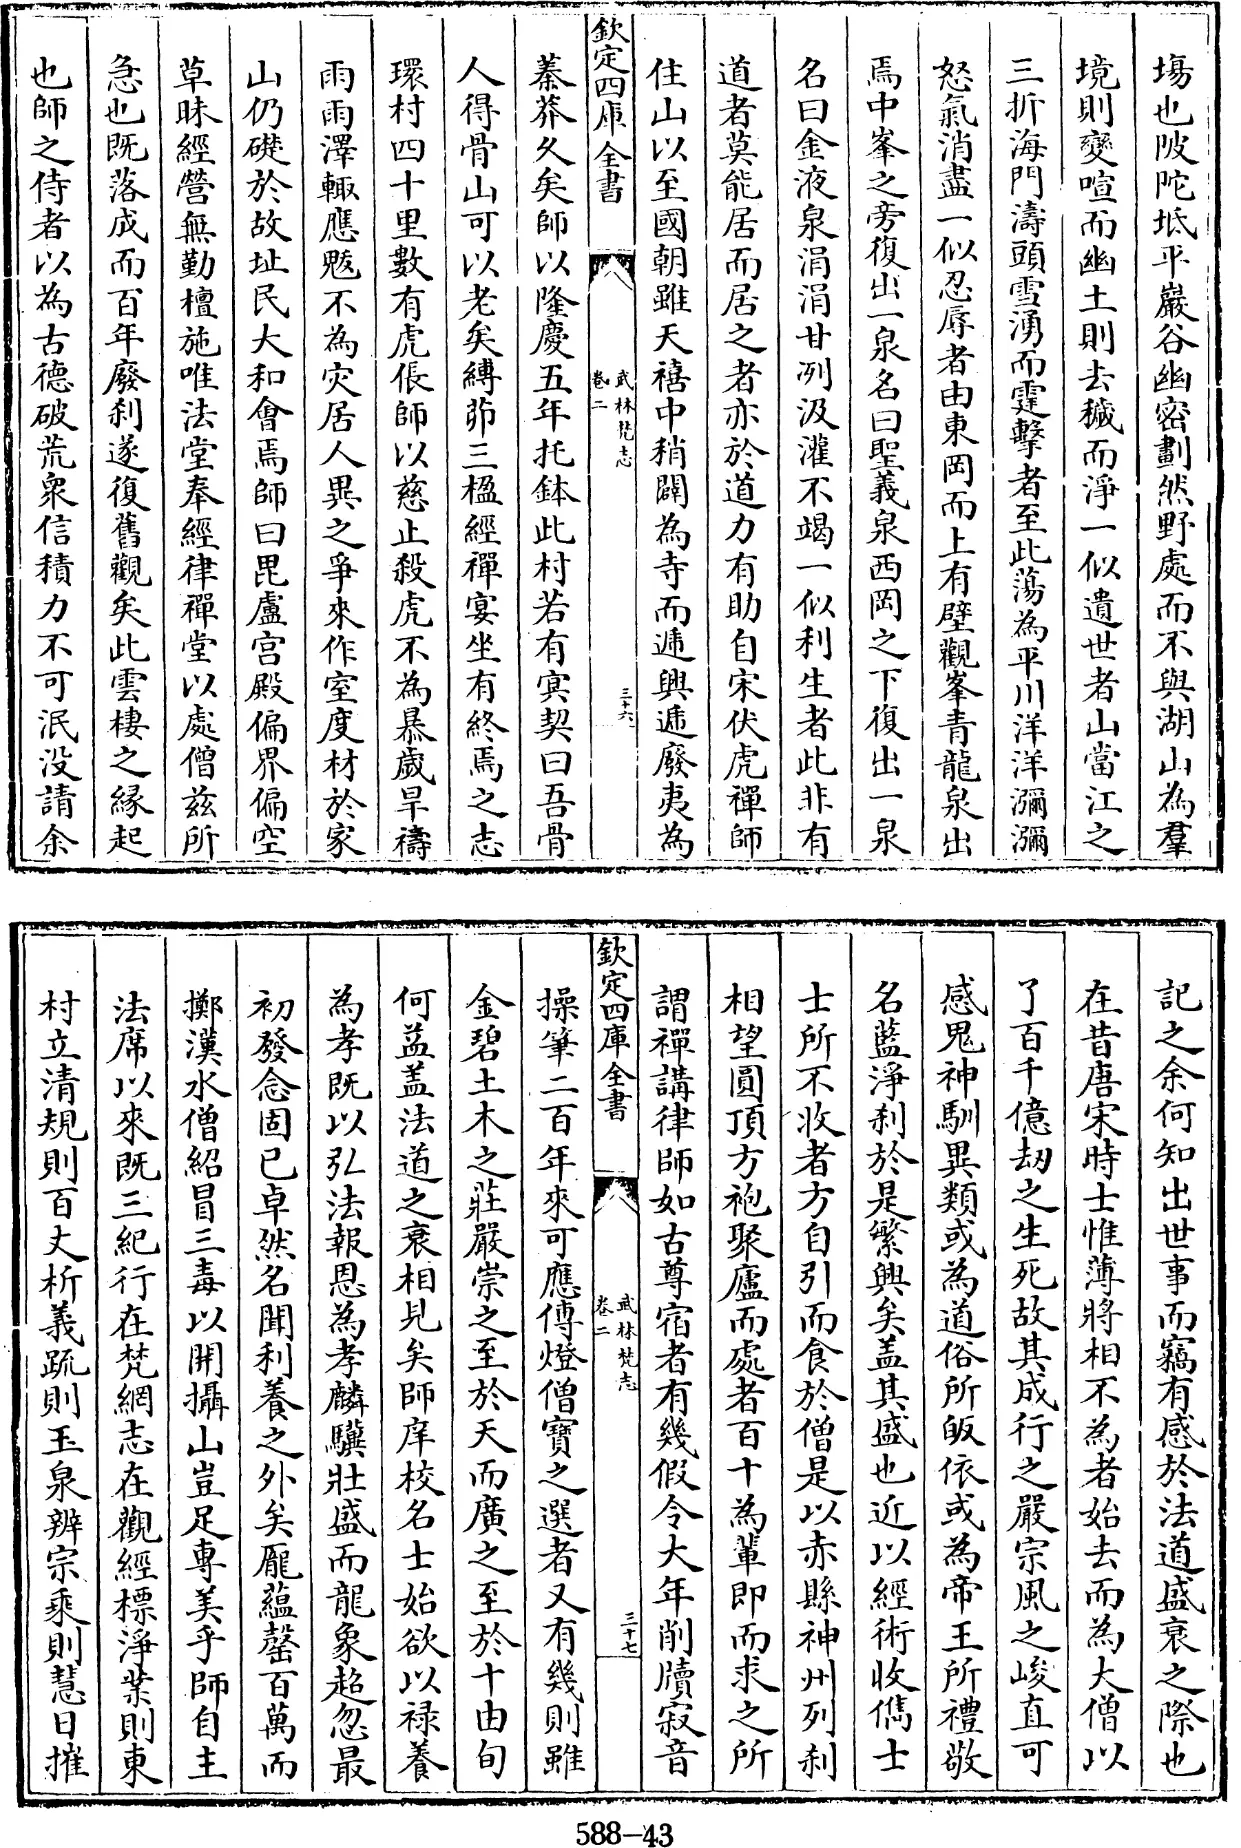 塲也陂陀坻平巖谷幽密劃然野處而不與湖山為羣
境則變喧而幽土則去穢而淨一似遺世者山當江之
三折海門濤頭雪湧而霆擊者至此蕩為平川洋洋瀰瀰
怒氣消盡一似忍辱者由東岡而上有壁觀峯青龍泉出
焉中峯之旁復出一泉名曰聖義泉西岡之下復出一泉
名曰金液泉涓涓甘冽汲灌不竭一似利生者此非有
道者莫能居而居之者亦於道力有助自宋伏虎禪師
住山以至國朝雖天禧中稍闢為寺而遞興遞廢夷為
欽定四庫全書
武林梵志
卷二
三十六
蓁莽久矣師以隆慶五年托鉢此村若有㝠契曰吾骨
人得骨山可以老矣縛茆三楹經禪宴坐有終焉之志
環村四十里數有虎倀師以慈止殺虎不為暴歲旱禱
雨雨澤輙應尫不為灾居人異之爭來作室度材於家
山仍礎於故址民大和會焉師曰毘盧宫殿偏界偏空
草昧經營無勤檀施唯法堂奉經律禪堂以處僧兹所
急也既落成而百年廢刹遂復舊觀矣此雲棲之緣起
也師之侍者以為古德破荒衆信積力不可泯没請余
記之余何知出世事而竊有感於法道盛衰之際也
在昔唐宋時士惟薄將相不為者始去而為大僧以
了百千億劫之生死故其成行之嚴宗風之峻直可
感鬼神馴異類或為道俗所皈依或為帝王所禮敬
名藍淨刹於是繁興矣盖其盛也近以經術收儁士
士所不收者方自引而食於僧是以赤縣神州列刹
相望圓頂方袍聚廬而處者百十為輩即而求之所
謂禪講律師如古尊宿者有幾假令大年削牘寂音
欽定四庫全書
武林梵志
卷二
三十七
操筆二百年來可應傳燈僧寶之選者又有幾則雖
金碧土木之莊嚴崇之至於天而廣之至於十由旬
何益盖法道之衰相見矣師庠校名士始欲以禄養
為孝既以弘法報恩為孝麟驥壯盛而龍象超忽最
初發念固已卓然名聞利養之外矣龎藴罄百萬而
擲漢水僧紹冒三毒以開攝山豈足專美乎師自主
法席以來既三紀行在梵網志在觀經標淨業則東
村立清規則百丈析義䟽則玉泉辨宗乘則慧日摧
588-43